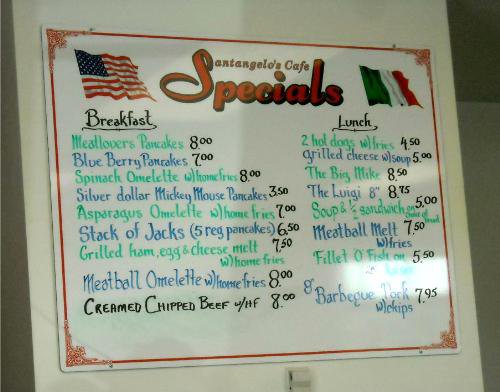 Santangelo's Cafe
Specials
Breakfast
Meatlovers Pancakes 8.00
Blue Berry Pancakes 7.00
Spinach Omelette w/homefries 8.00
Silver dollar Mickey Mouse Pancakes 3.50
Asparagus Omelette w/home fries 7.00
Stack of Jacks (5 reg pancakes) 6.50
Grilled ham, egg & cheese melt 7.50
w/home fries
Meatball Omelette w/home fries 8.00
Creamed Chipped Beef w/HF 8.00
Lunch
2 hot dogs w/fries 4.50
grilled cheese w/soup 5.00
The Big Mike 8.50
The Luigi 8" 8.75
Soup & ½ sandwich on 5.00
choice of bread
Meatball Melt 7.50
w/fries
Fillet O'Fish on 5.50
8" Barbegue Pork 7.95
w/chips